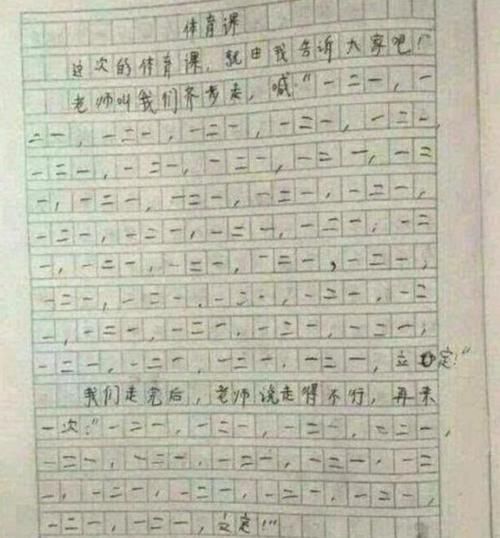 体育课
这次的体育课，就由我告诉大家吧！
老师叫我们齐步走，喊："一二一，一
二一，一二一，一二一，一二一，一二一，
一二一，一二一，一二一，一二一，一二
一，一二一，一二一，一二一，一二一，
一二一，一二一，一二一，一二一，一二
一，一二一，一二一，一二一，一二一，
一二一，一二一，一二一，一二一，一二
一，一二一，一二一，一二一，一二一，
一二一，一二一，一二一，一二一，立定！"
我们走完后，老师说走得不行，再来
一次："一二一，一二一，一二一，一二一，
一二一，一二一，一二一，一二一，一二
一，一二一，一二一，一二一，一二一，
一二一，一二一，立定！"